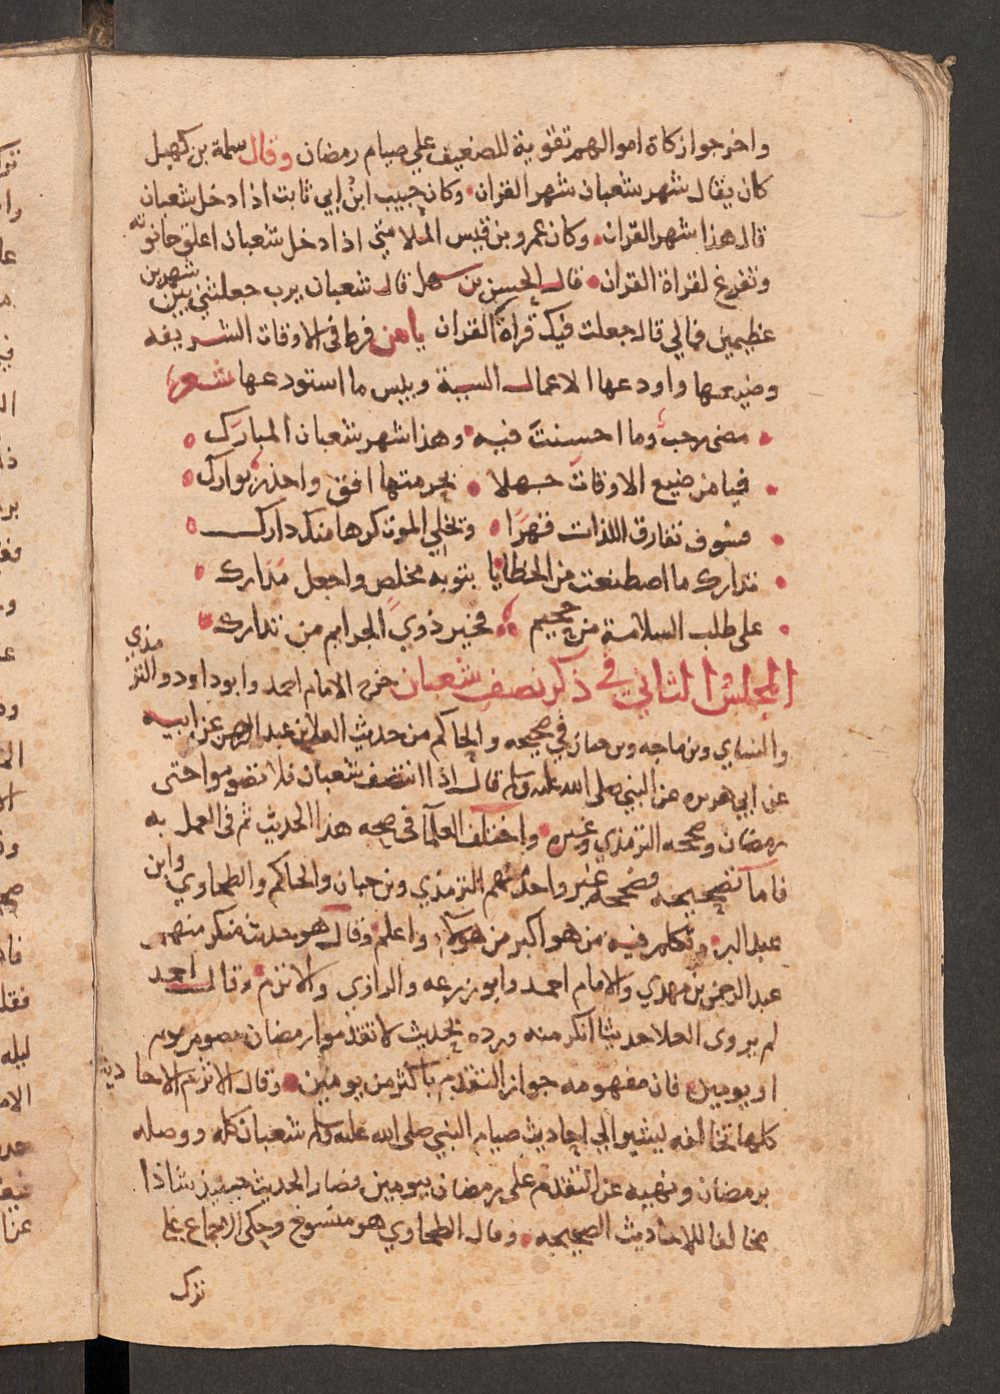 واخرجوا زكاة اموالهم تقوية للضعيف علي صيام رمضان وقال سلمة بن كهيل
كان يقال شهر شعبان شهر القران وكان حبيب ابن ابي ثابت اذا دخل شعبان
قال هذا شهر القران وكان عمرو بن قيس الملامتي اذا دخل شعبان اغلق حانوته
وتفرغ لقراة القران قال الحسن بن سهل قال شعبان يرب جعلتني بين شهرين
عظيمين فمالي قال جعلت فيك قراة القران يا من فرط في الاوقات الشريفه
وضيعها واودعها الاعمال السية وبيس ما استودعها شعر
مضى رجب وما احسنت فيه وهذا شهر شعبان المبارك
فيا من ضيع الاوقات جهلا بحرمتها افق واحذر بوارك
فسوف تفارق اللذات قهرا وتخلي الموت كرها منك دارك
تدارك ما اصطنعت من الخطايا بتوبه مخلص واجعل مدارك
على طلب السلامة من جحيم فخير ذوي الجرايم من تدارك
المجلس الثاني في ذكر نصف شعبان خرج الامام احمد وابو داود والترمذي
والنساي وبن ماجه وبن حبان في صحيحه والحاكم من حديث العلا بن عبد الرحمن عن ابيه
عن ابي هريره عن النبي صلى الله عليه وسلم قال اذا انتصف شعبان فلا تصوموا حتى
رمضان وصححه الترمذي وغيره واختلف العلمآ في صحه هذا الحديث ثم في العمل به
فاما تصحيحه فصححه غير واحد منهم الترمذي وبن حبان والحاكم والطحاوي وابن
عبد البر وتكلم فيه من هو اكبر من هولآ واعلم وقال هو حديث منكر منهم
عبد الرحمن بن مهدي والامام احمد وابو زرعه والرازي والاثرم وقال احمد
لم يروى العلا حديثا انكر منه ورده بحديث لا تقدموا رمضان بصوم يوم
او يومين فان مفهومه جواز التقدم باكثر من يومين وقال الاثرم الاحاديث
كلها تخالفه ليشير الي احاديث صيام النبي صلى الله عليه وسلم شعبان كله ووصله
برمضان ونهيه عن التقدم على رمضان بيومين فصار الحديث حينيذ شاذا
مخالفا للاحاديث الصحيحه وقال الطحاوي هو منسوخ وحكى الاجماع على
ترك